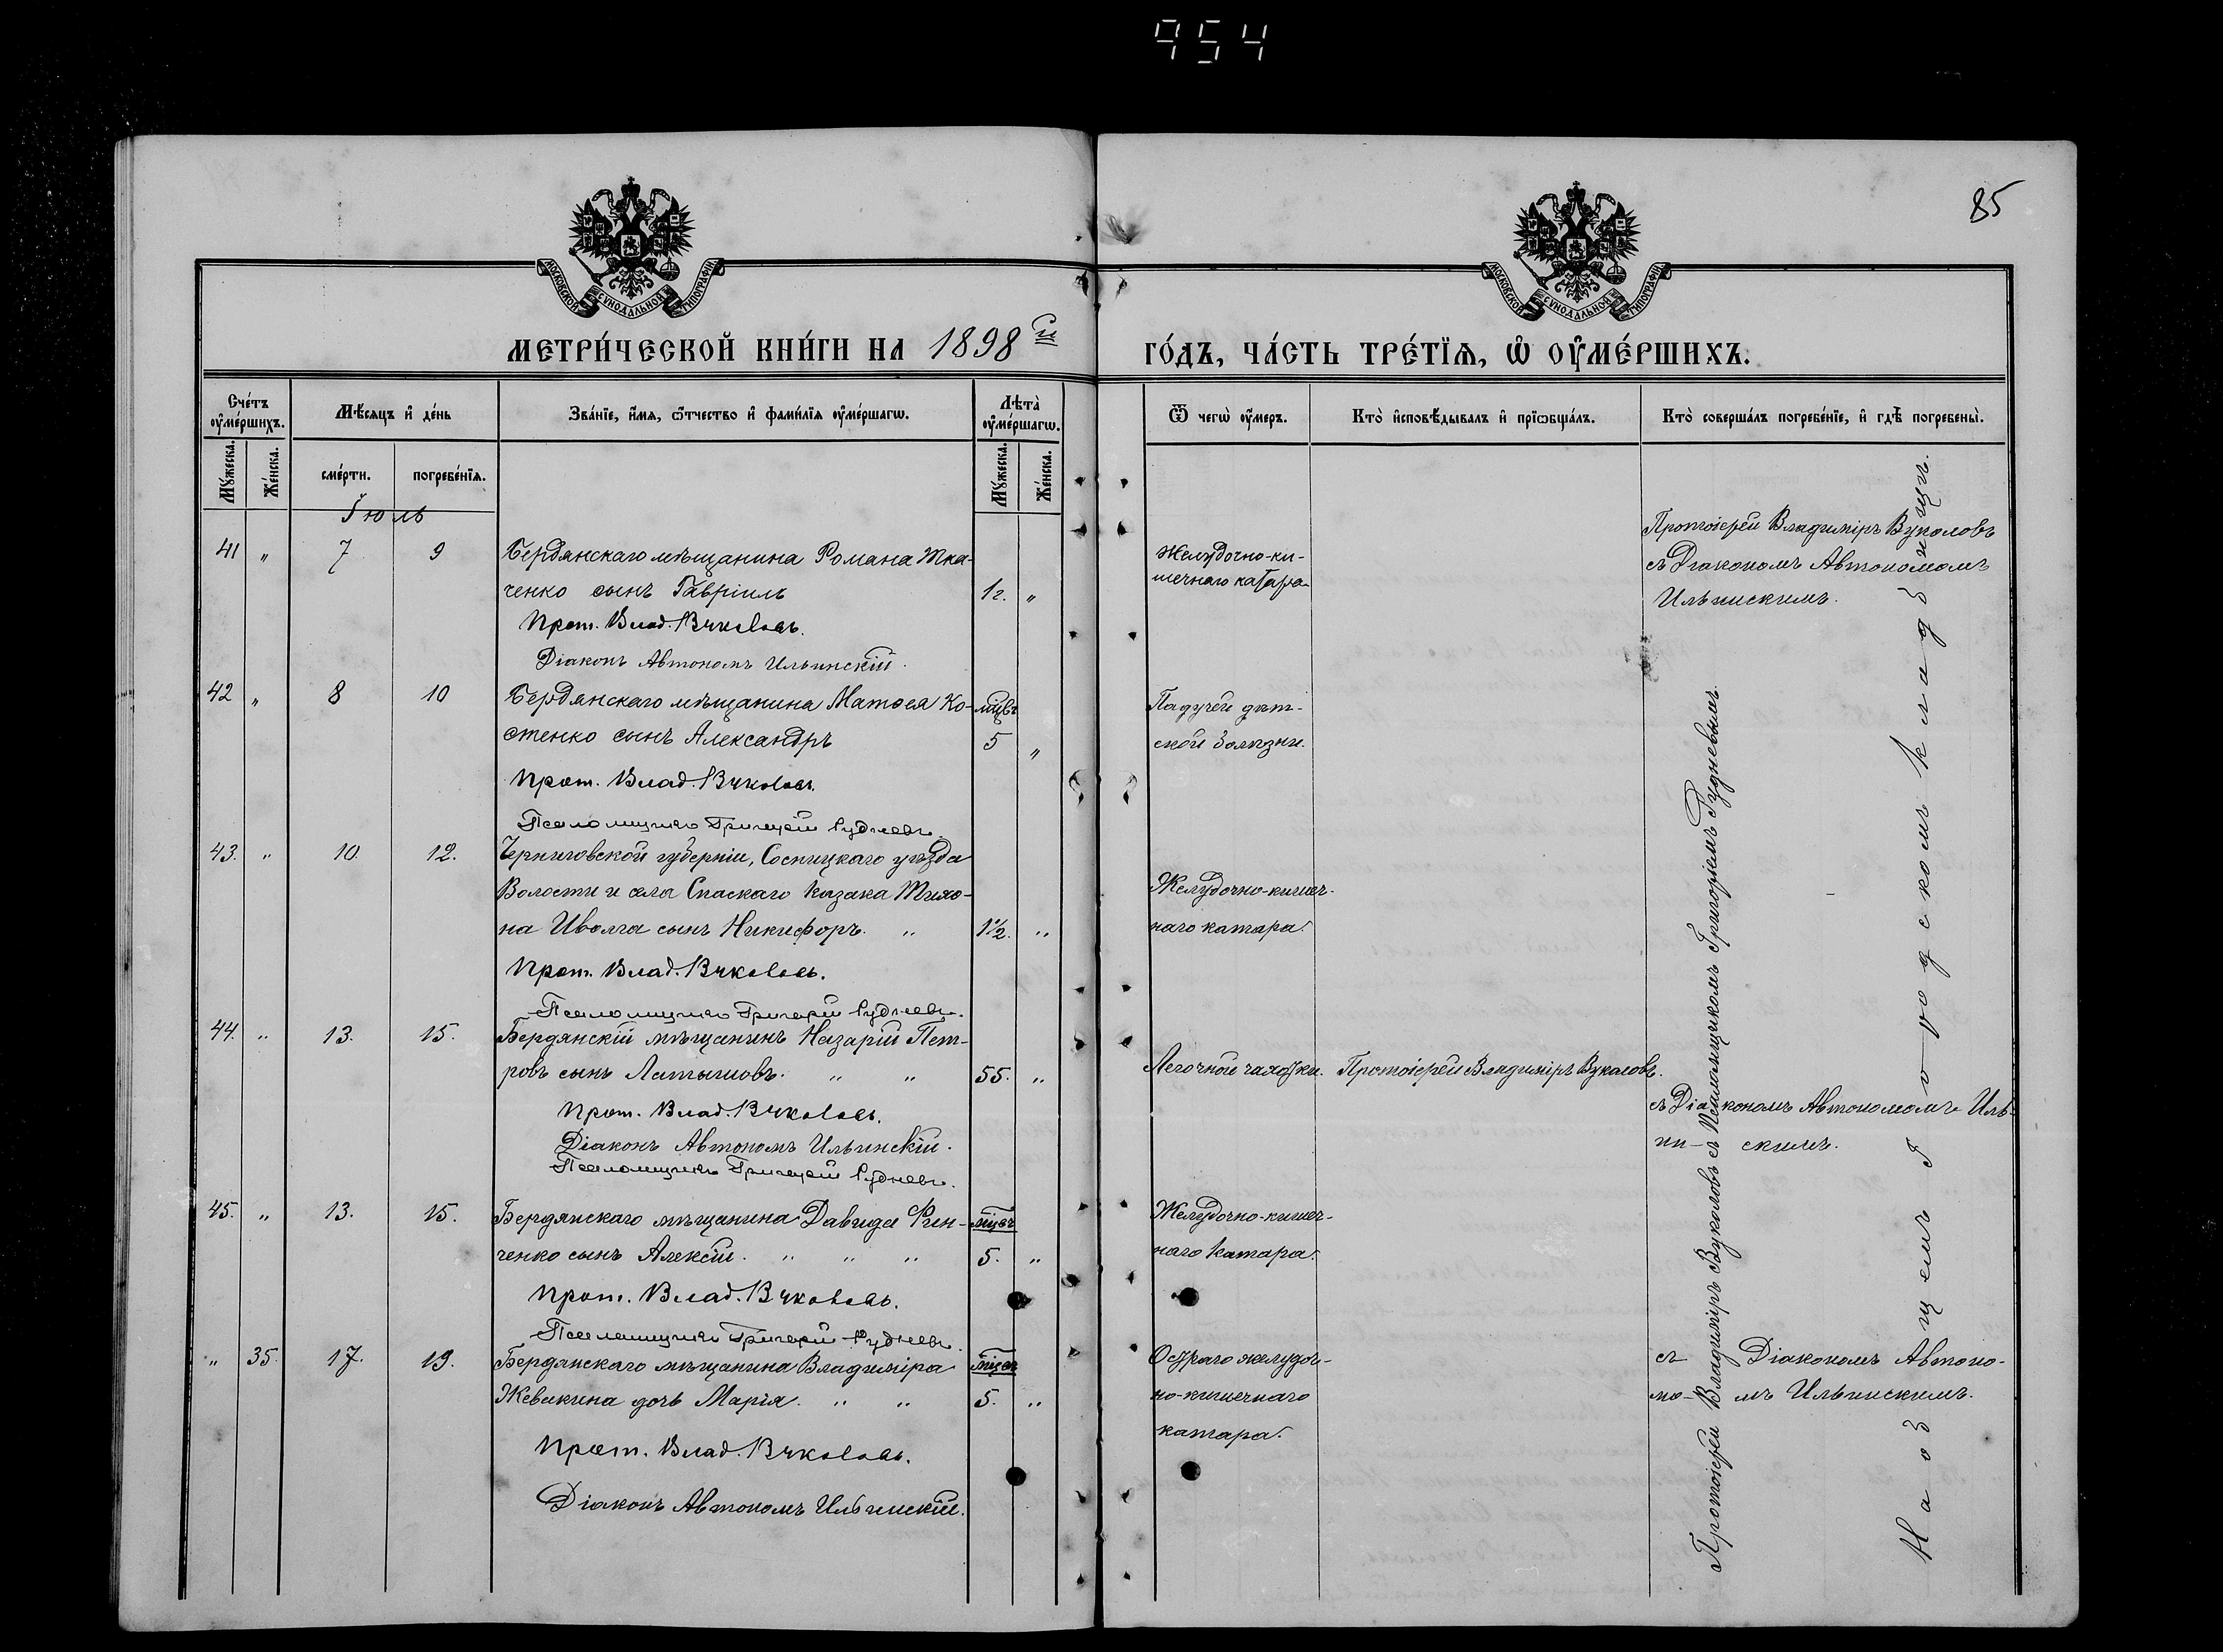 954
85
МОСКОВСКОЙ СѴНОДАЛЬНОЙ ТИПОГРАФІИ
МОСКОВСКОЙ СѴНОДАЛЬНОЙ ТИПОГРАФІИ
МЕТРИ́ЧЕСКОЙ КНИ́ГИ НА 1898й
ГО́ДЪ, ЧА́СТЬ ТРЕ́ТЇѦ, Ѡ҆ ОУ҆МЕ́РШИХЪ.
Сче́тъ оу҆ме́ршихъ.
Мꙋ́жеска.
Же́нска.
Мѣ́сяцъ и҆ де́нь
сме́рти.
погребе́нїѧ.
Зва́нїе, и҆́мѧ, ѻ҆́тчество и҆ фами́лїѧ оу҆ме́ршагѡ.
Лѣ́та̀ оу҆ме́ршагѡ.
Мꙋ́жеска.
Же́нска.
Ѿ чегѡ̀ оу҆́меръ.
Кто̀ и҆сповѣ́дывалъ и҆ прїѡбща́лъ.
Кто̀ соверша́лъ погребе́нїе, и҆ гдѣ̀ погребены̀.
Іюль
41 " 7 9 Бердянскаго мѣщанина Романа Тка-
ченко сынъ Гавріилъ 1г. "
Прот. Влад. Вуколовъ.
Діаконъ Автономъ Ильинскій.
Желудочно-ки-
шечнаго катара
Протоіерей Владиміръ Вуколовъ
съ Діакономъ Автономомъ
Ильинскимъ.
42 " 8 10 Бердянскаго мѣщанина Матѳея Ко- мцвъ
стенко сынъ Александръ 5 "
Прот. Влад. Вуколовъ.
Псаломщикъ Григорій Рудневъ.
Падучей дѣт-
ской болѣзни.
43. " 10. 12. Черниговской губерніи, Сосницкаго уѣзда
Волости и села Спаскаго казака Тихо-
на Иволга сынъ Никифоръ. " 1½. "
Прот. Влад. Вуколовъ.
Псаломщикъ Григорій Рудневъ.
Желудочно-кишеч-
наго катара.
44. " 13. 15. Бердянскій мѣщанинъ Назарій Пет-
ровъ сынъ Латышовъ. " " 55. "
Прот. Влад. Вуколовъ.
Діаконъ Автономъ Ильинскій.
Псаломщикъ Григорій Рудневъ.
Легочной чахотки. Протоіерей Владиміръ Вуколовъ.
съ Діакономъ Автономомъ Иль-
ин- скимъ.
45. " 13. 15. Бердянскаго мѣщанина Давида Фин- мцевъ
ченко сынъ Алексій. " " " 5. "
Прот. Влад. Вуколовъ.
Псаломщикъ Григорій Рудневъ.
Желудочно-кишеч-
наго катара.
" 35. 17. 19. Бердянскаго мѣщанина Владиміра мцевъ
Жевакина дочь Марія. " " 5. "
Прот. Влад. Вуколовъ.
Діаконъ Автономъ Ильинскій.
Остраго желудоч-
но-кишечнаго
катара.
съ Діакономъ Автоно-
мо- мъ Ильинскимъ.
Протоіерей Владиміръ Вуколовъ съ Псаломщикомъ Григоріемъ Рудневымъ.
На общемъ городскомъ кладбищѣ.